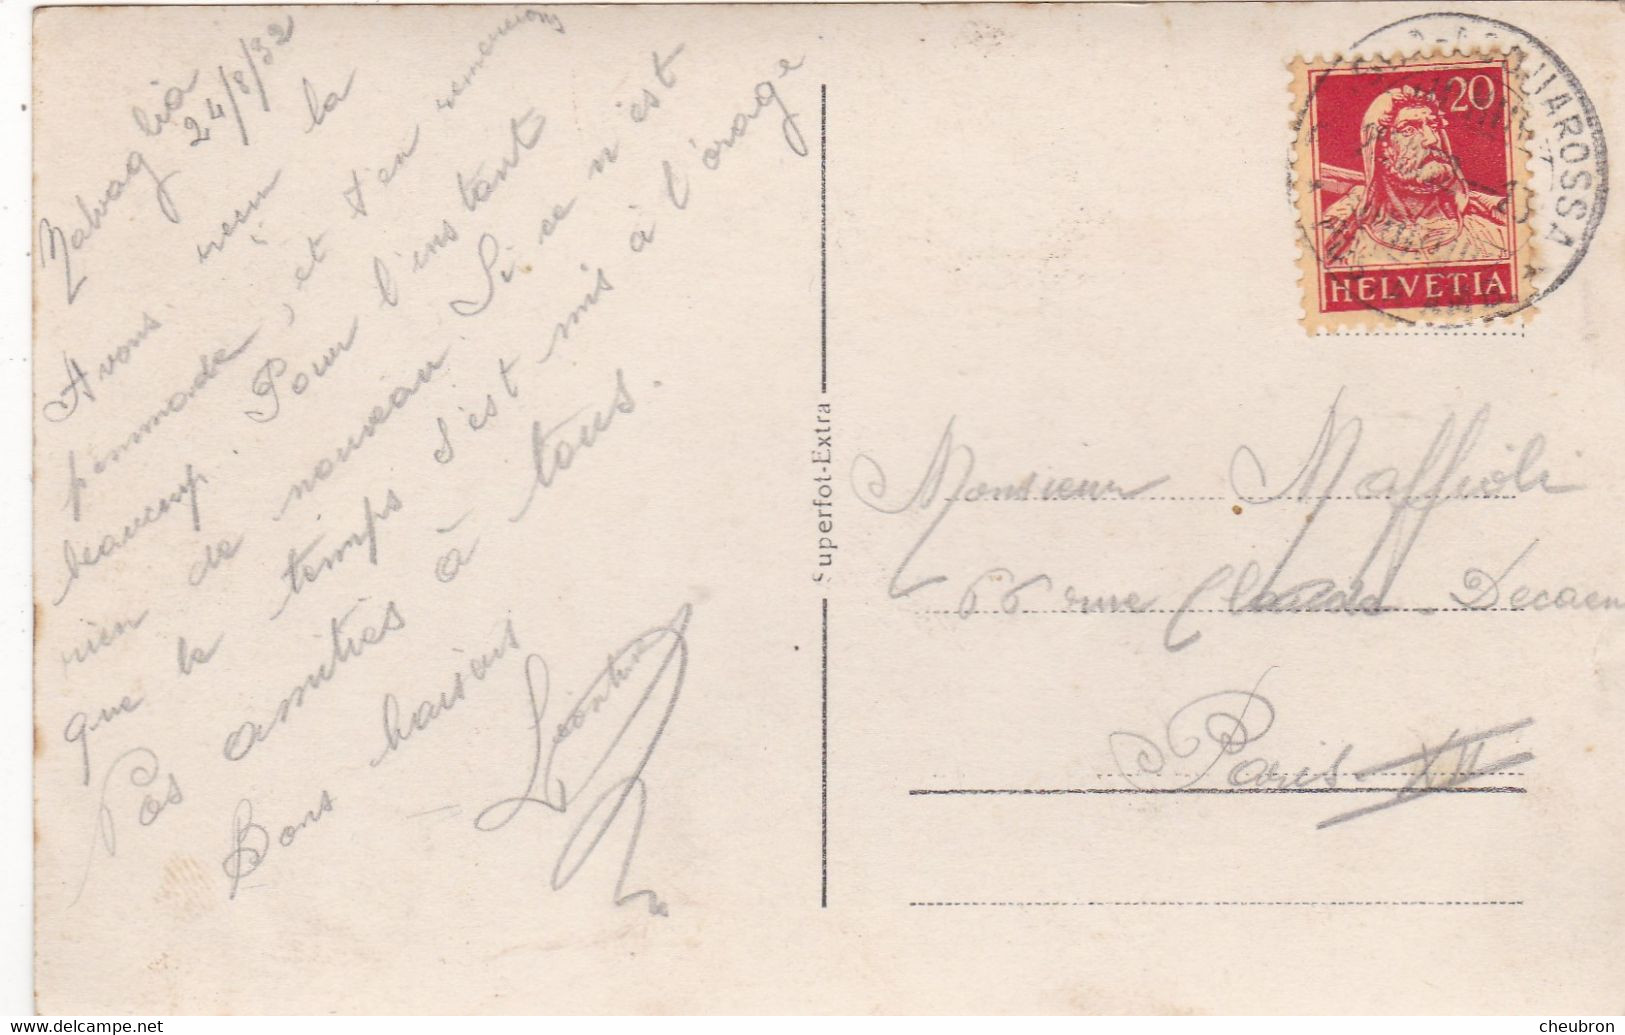 Malvaglia
24/8/32
Avons reçu la
pommade, et t'en remercions
beaucoup. Pour l'instant
rien de nouveau. Si ce n'est
que le temps s'est mis à l'orage
amitiés à tous.
Bons baisers
Superfot-Extra
20
HELVETIA
Monsieur Maffioli
66 rue Claude Decaen
Paris XII
www.delcampe.net
cheubron